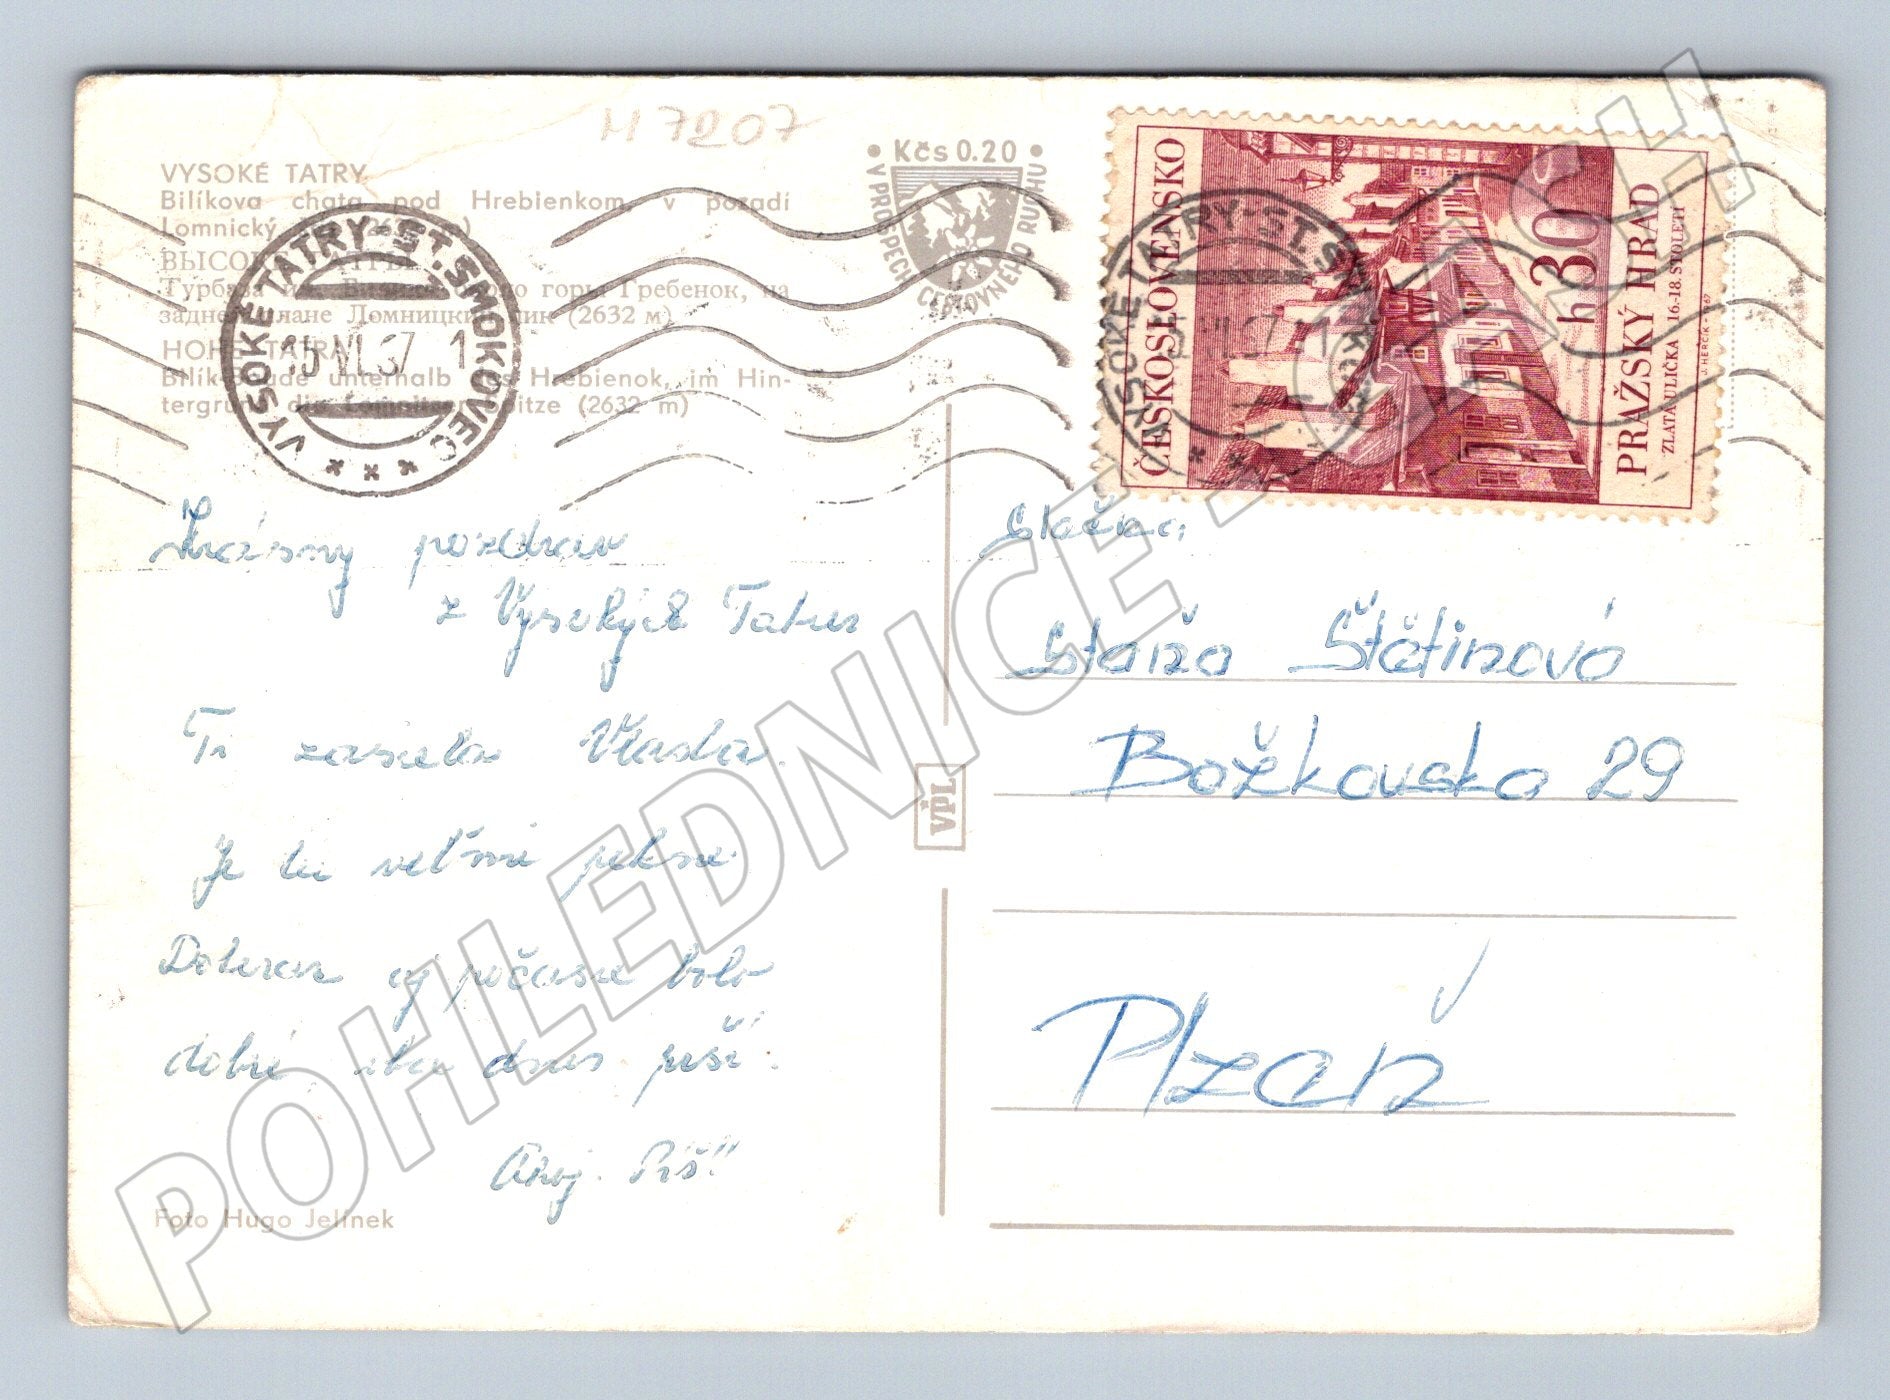 M 7207
VYSOKÉ TATRY
Bilíkova chata pod Hrebienkom, v pozadí
Lomnický
ВЫСОКИЕ ТАТРЫ
горы Гребенок, на
заднем плане Ломницкий пик (2632 м)
HOHE TATRA
Bilik-Baude unterhalb des Hrebienok, im Hin-
tergrund die Lomnitzer Spitze (2632 m)
VYSOKÉ TATRY-ST.SMOKOVEC
15.VI.67 1
Kčs 0.20
V PROSPECH CESTOVNÉHO RUCHU
VYSOKÉ TATRY-ST.SMOKOVEC
ČESKOSLOVENSKO
30 h
PRAŽSKÝ HRAD
ZLATÁ ULIČKA 16.-18. STOLETÍ
J. HERČÍK
Krásny pozdrav
z Vysokých Tatier
Ti zasiela Vlasta.
Je tu veľmi pekne.
Doteraz aj počasie bolo
dobré ale dnes prší.
Ahoj. Píš!!
Foto Hugo Jelínek
VPL
Slečna
Staňa Štětinová
Božkovska 29
Plzeň
POHLEDNICE